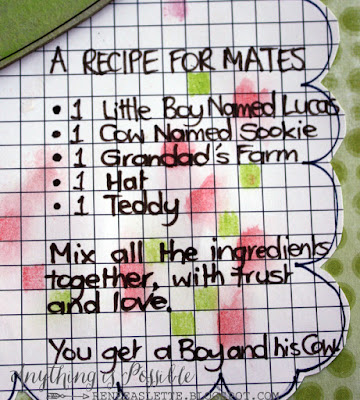 A RECIPE FOR MATES
• 1 Little Boy Named Lucas
• 1 Cow Named Sookie
• 1 Grandad's Farm
• 1 Hat
• 1 Teddy
Mix all the ingredients
together, with trust
and love.
You get a Boy and his Cow
anything is Possible